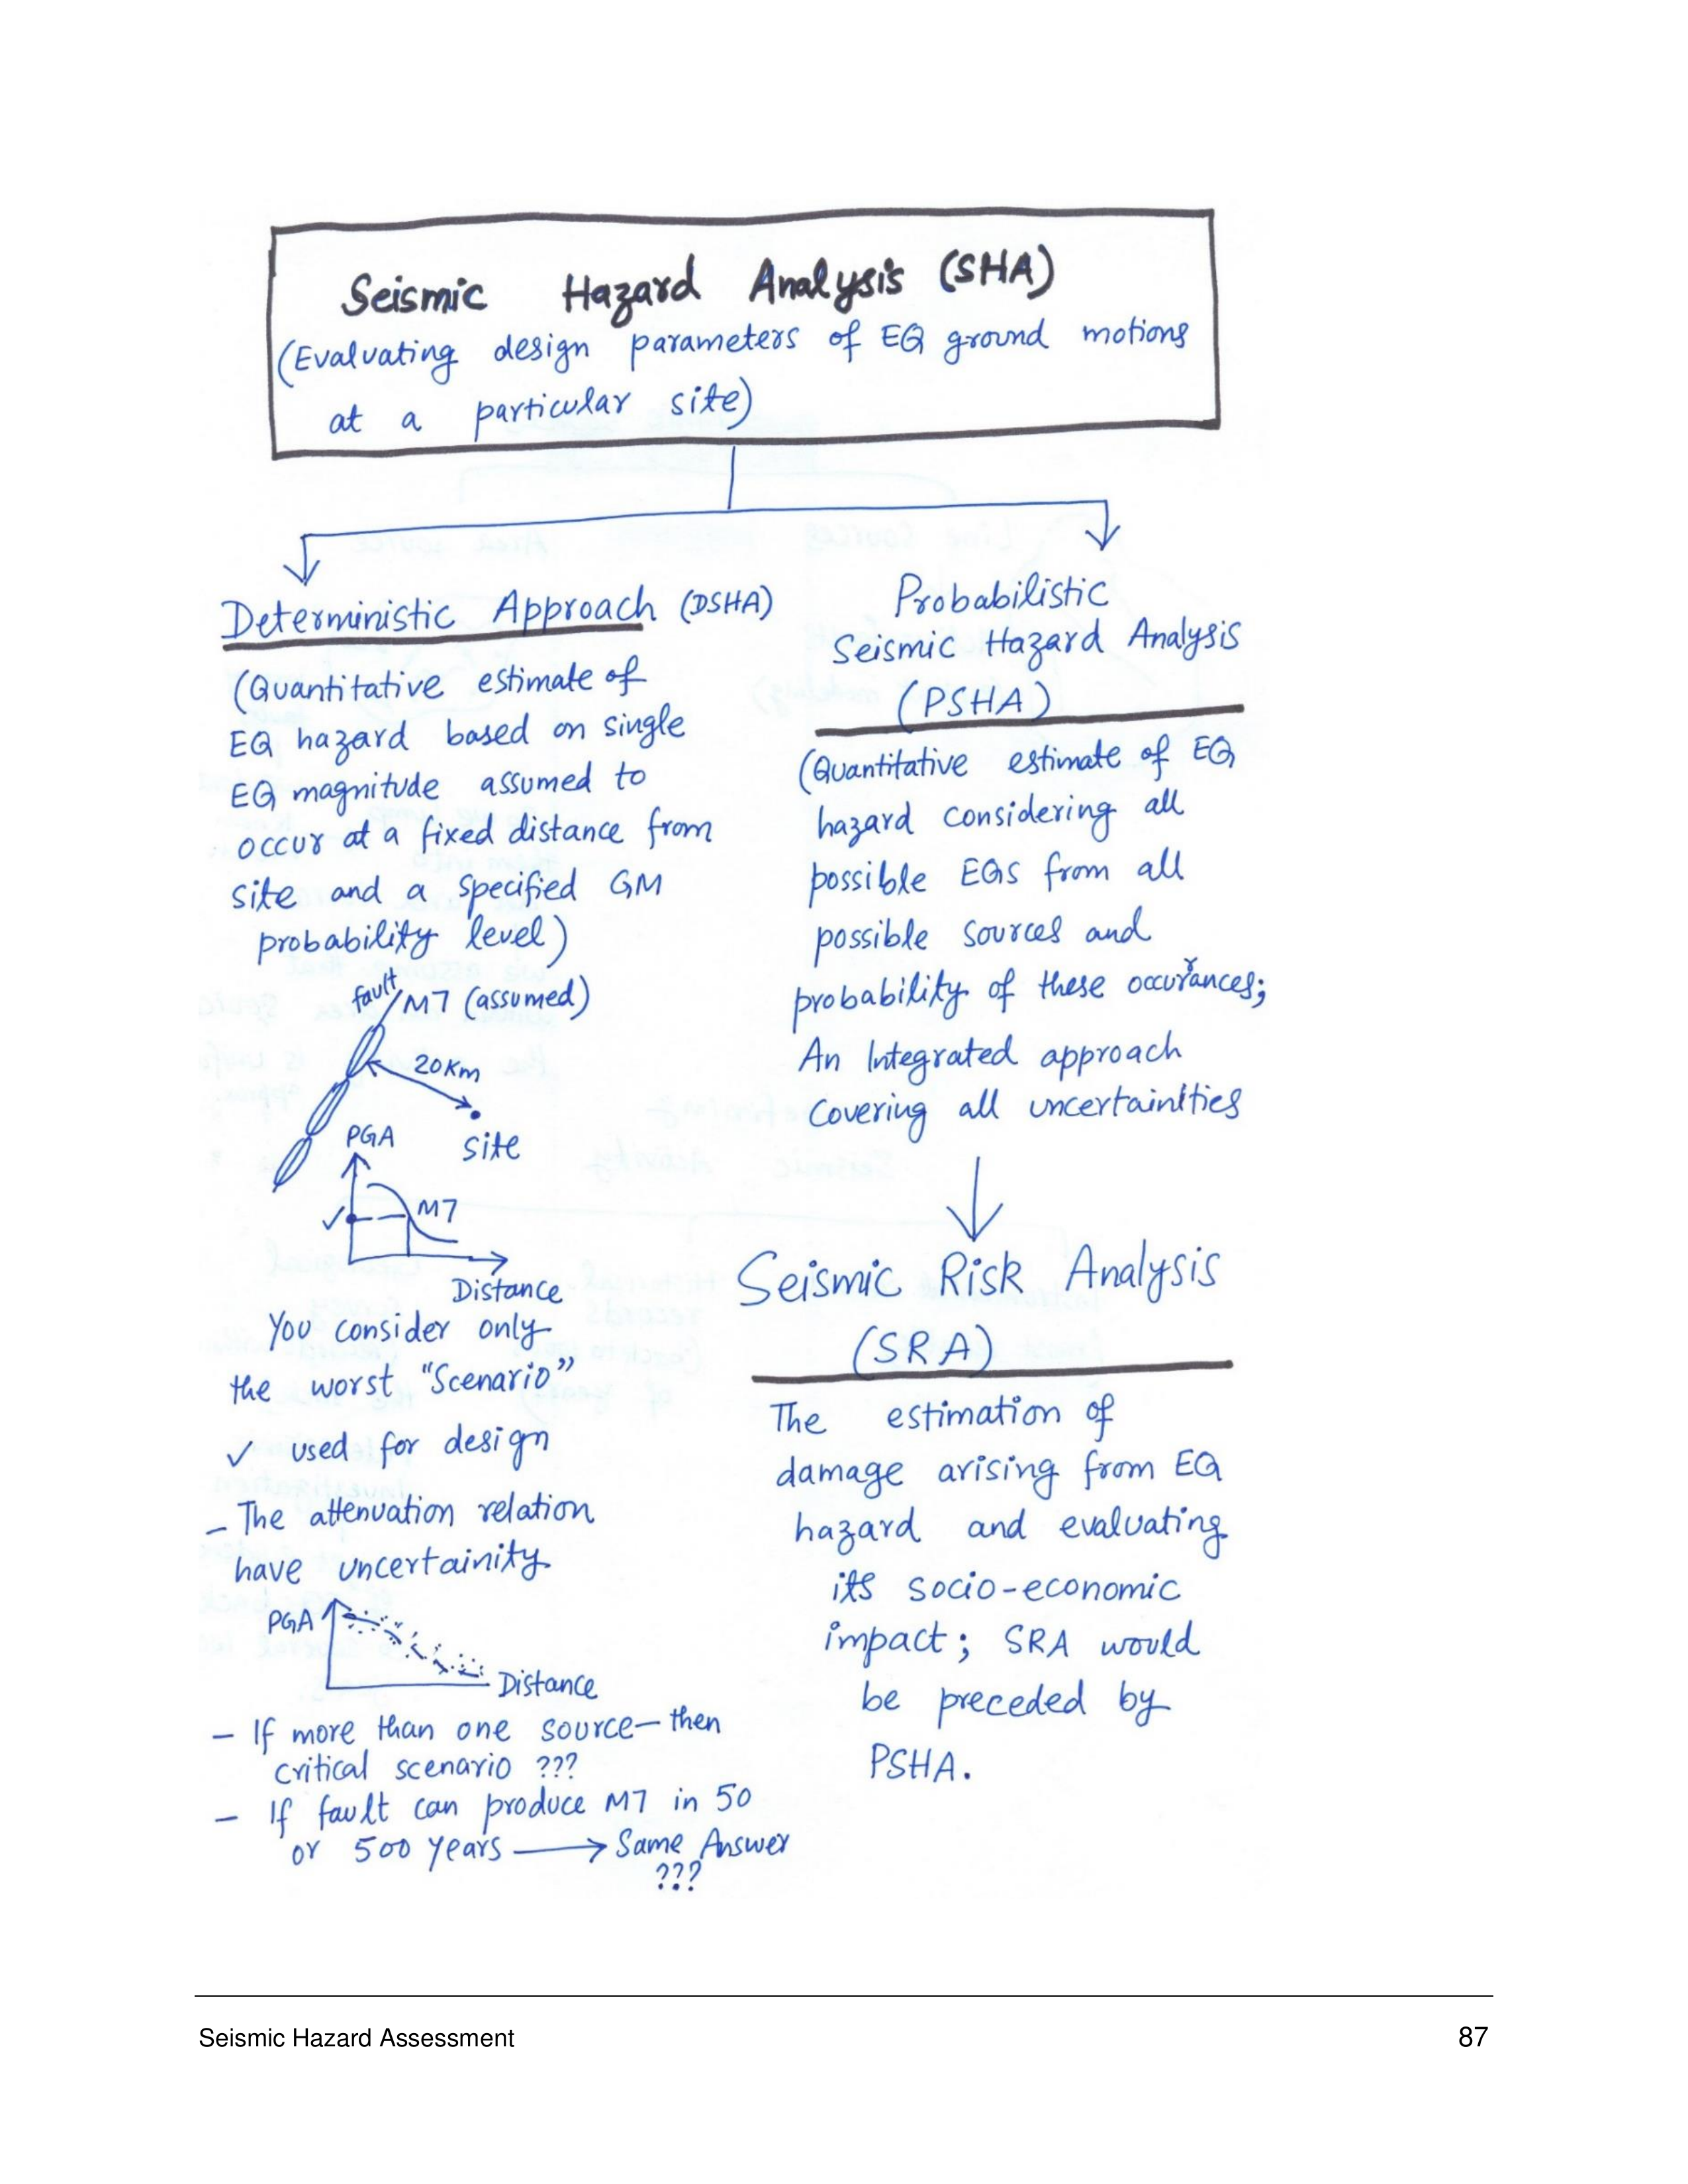 Seismic Hazard Analysis (SHA)
(Evaluating design parameters of EQ ground motions
at a particular site)
Deterministic Approach (DSHA)
(Quantitative estimate of
EQ hazard based on single
EQ magnitude assumed to
occur at a fixed distance from
site and a specified GM
probability level)
fault M7 (assumed)
20km
site
PGA
M7
Distance
You consider only
the worst "Scenario"
✓ used for design
- The attenuation relation
have uncertainity
PGA
Distance
- If more than one source- then
critical scenario ???
- If fault can produce M7 in 50
or 500 years → Same Answer
???
Probabilistic
Seismic Hazard Analysis
(PSHA)
(Quantitative estimate of EQ
hazard considering all
possible EQs from all
possible sources and
probability of these occurrances;
An Integrated approach
covering all uncertainities
Seismic Risk Analysis
(SRA)
The estimation of
damage arising from EQ
hazard and evaluating
its socio-economic
impact; SRA would
be preceded by
PSHA.
Seismic Hazard Assessment 87